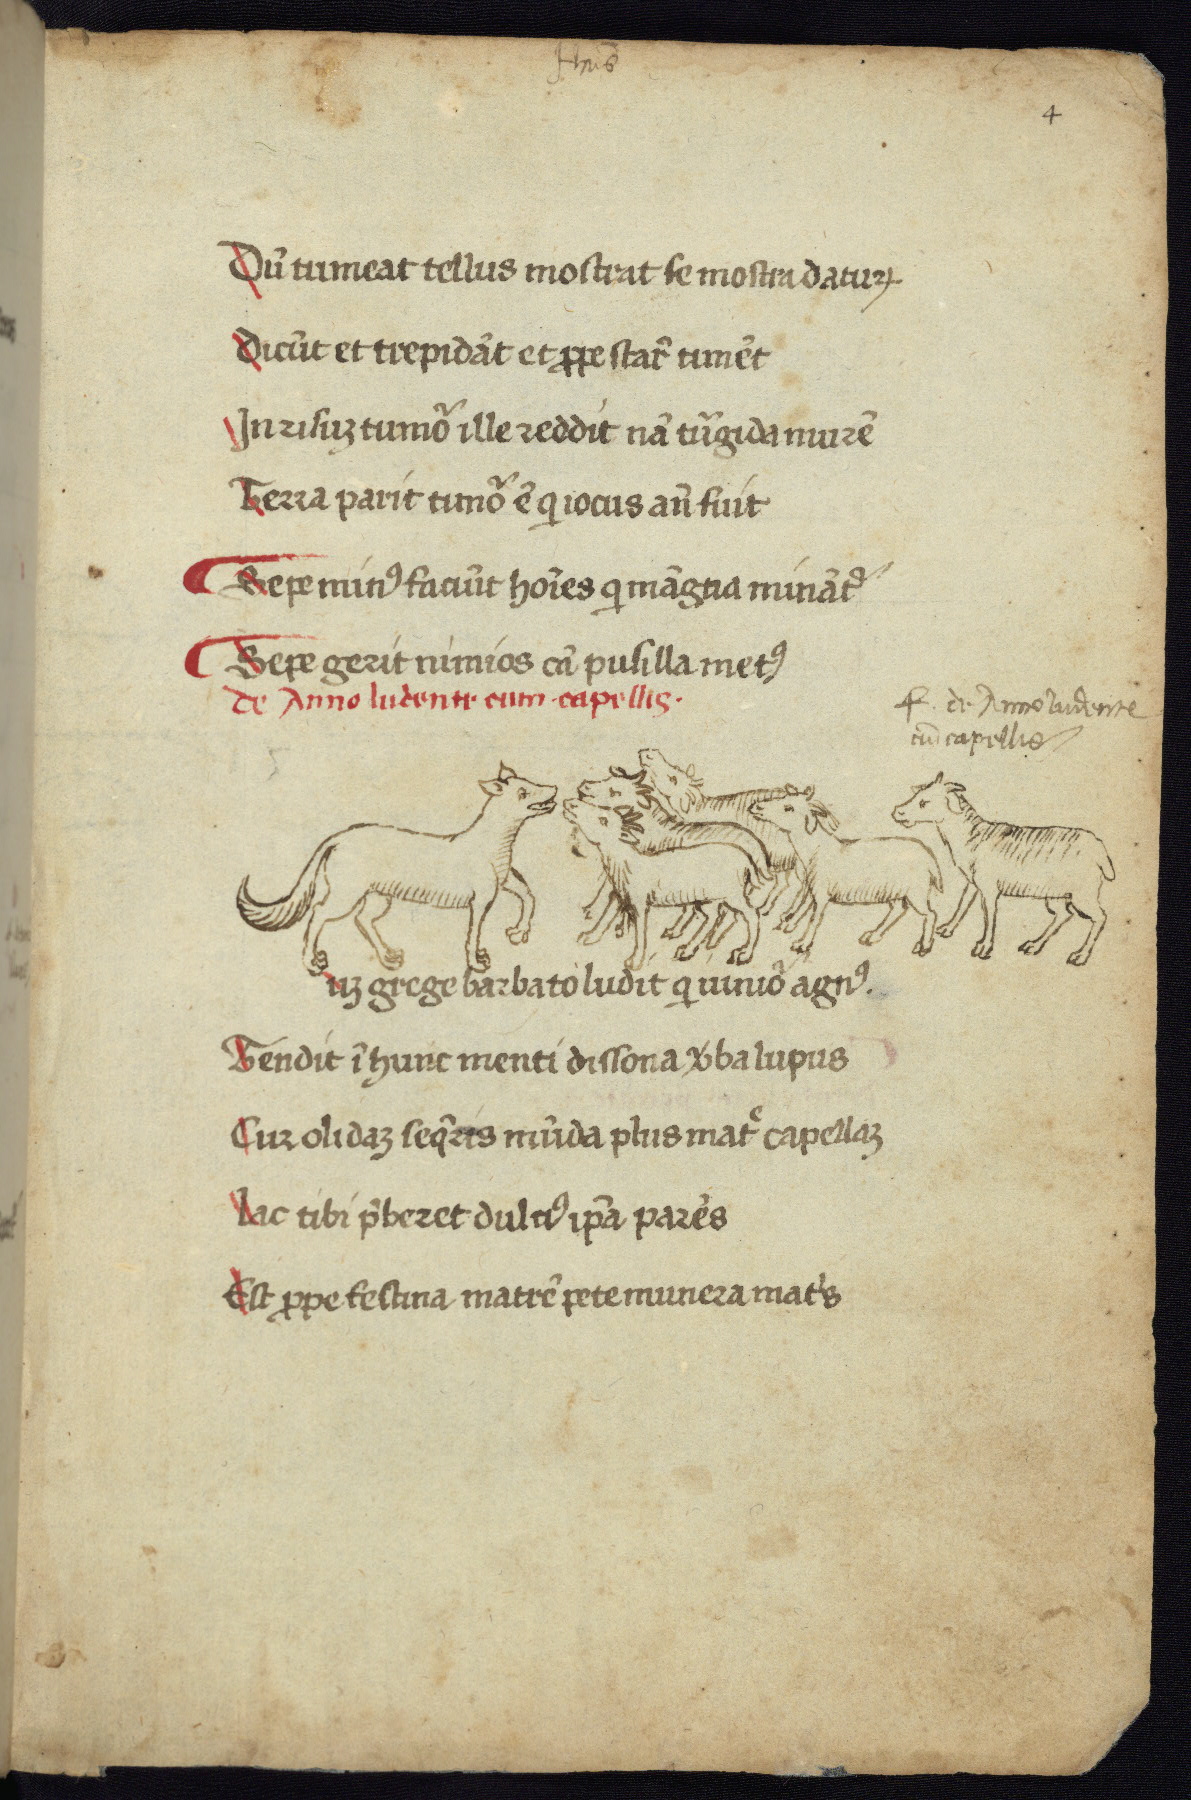 Ihus
4
Dū tumeat tellus mostrat se mostra daturꝝ
Dicūt et trepidāt et ꝓpe star̄ timēt
In risuꝫ tumoͬ ille reddit nā tūgida murē
Terra parit timoͬ ē qͥ iocus an̄ fuit
Sepe minꝰ faciūt hoīes qͥ māgna minātᷣ
Sepe gerit nimios cā pusilla metꝰ
de Anno ludente cum capellis.
f. de Anno ludente
cū capellis
uꝫ grege barbato ludit qͥ iunioͬ agnꝰ.
Tendit ī hunc menti dissona v̄ba lupus
Cur olidaꝫ seq̄ris mūda plus mat̄e capellaꝫ
Lac tibi p̄beret dulciꝰ ip̄a parēs
Est ꝓpe festina matrē pete munera mat̄s